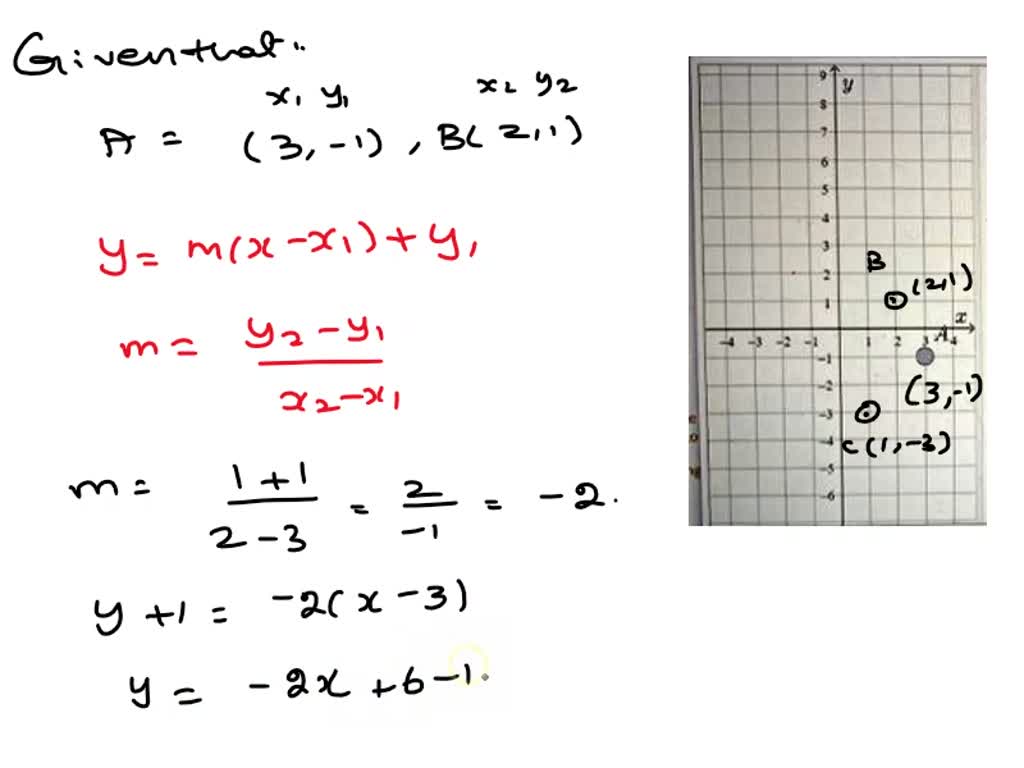 Given that..
x₁ y₁ x₂ y₂
A = (3, -1), B(2,1)
y = m(x - x₁) + y₁
m = y₂ - y₁ / x₂ - x₁
m = 1 + 1 / 2 - 3 = 2 / -1 = -2.
y + 1 = -2(x - 3)
y = -2x + 6 - 1.
9 y
8
7
6
5
4
3
B
2
(2,1)
1
x
-4 -3 -2 -1 1 2 3 A 4
-1
-2
(3,-1)
-3
-4 C(1,-3)
-5
-6